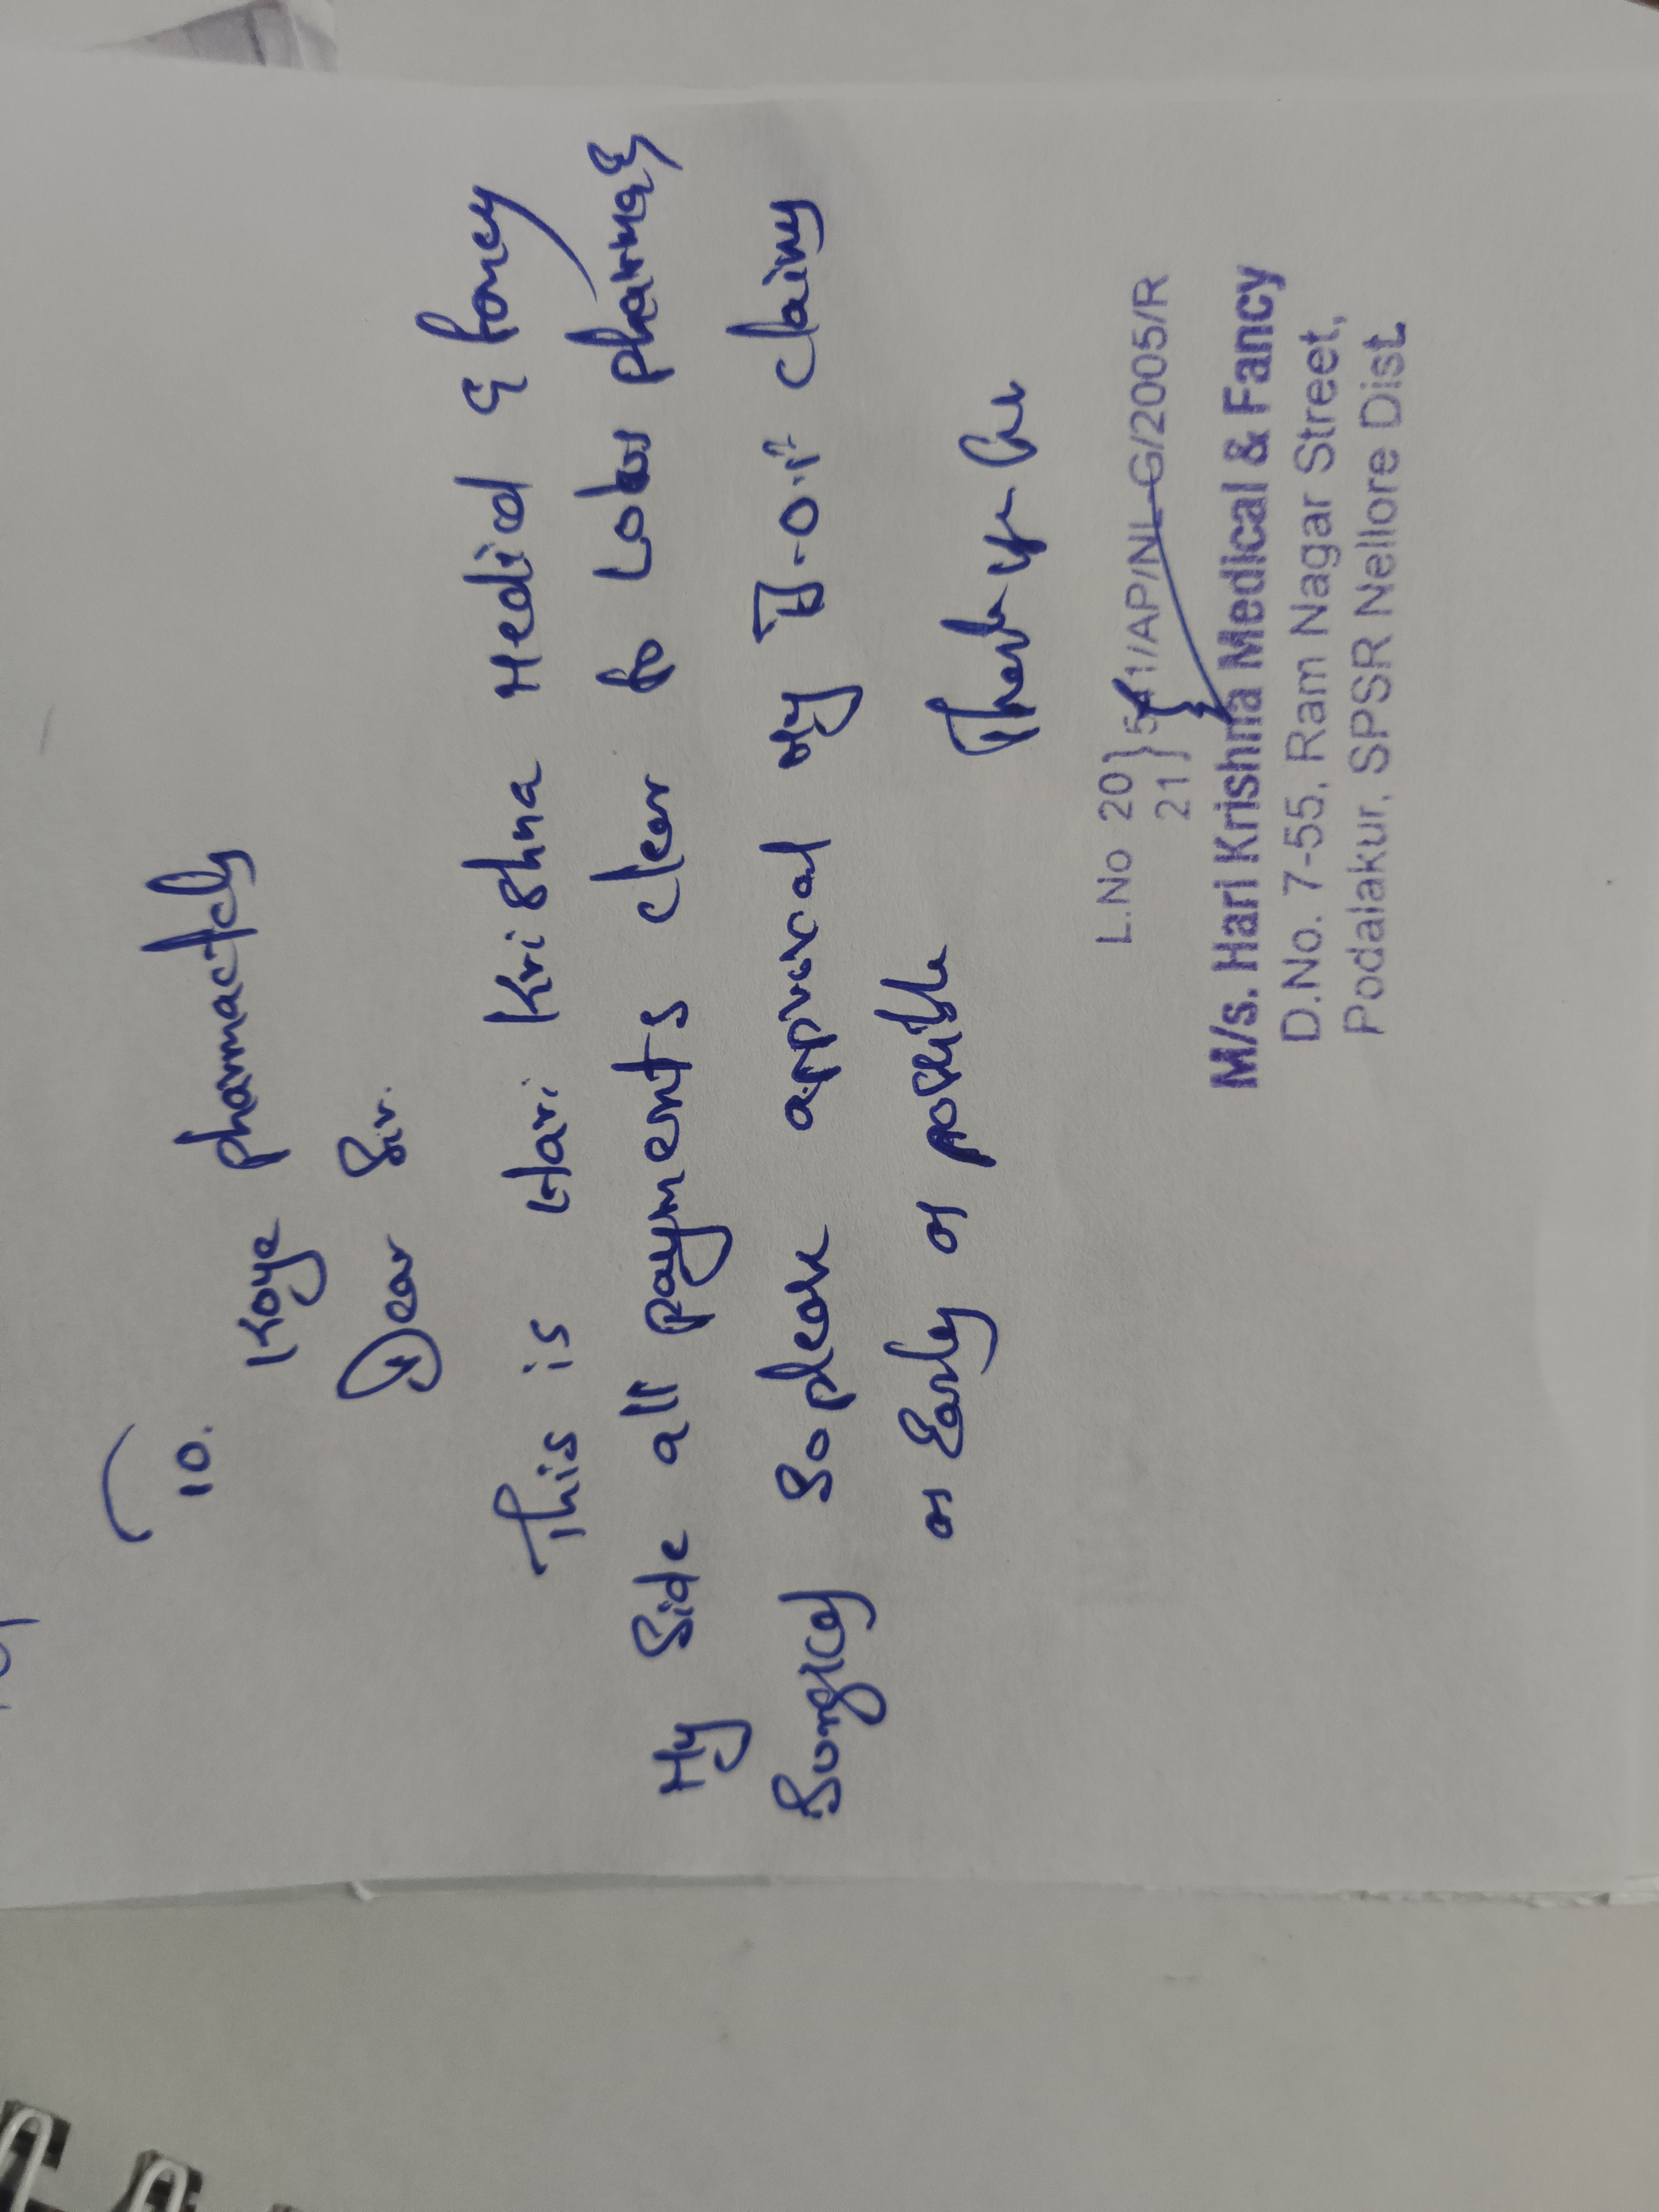 To.
Koye pharmactcly
Dear Sir.
This is Hari Krishna Medical & fancy
My Side all payments clear to Lotus pharma &
Surgical So please approval my claims
as Early as possible
Thank you Sir
L.No 20} 541/AP/NL-G/2005/R
21}
M/s. Hari Krishna Medical & Fancy
D.No. 7-55, Ram Nagar Street,
Podalakur, SPSR Nellore Dist.